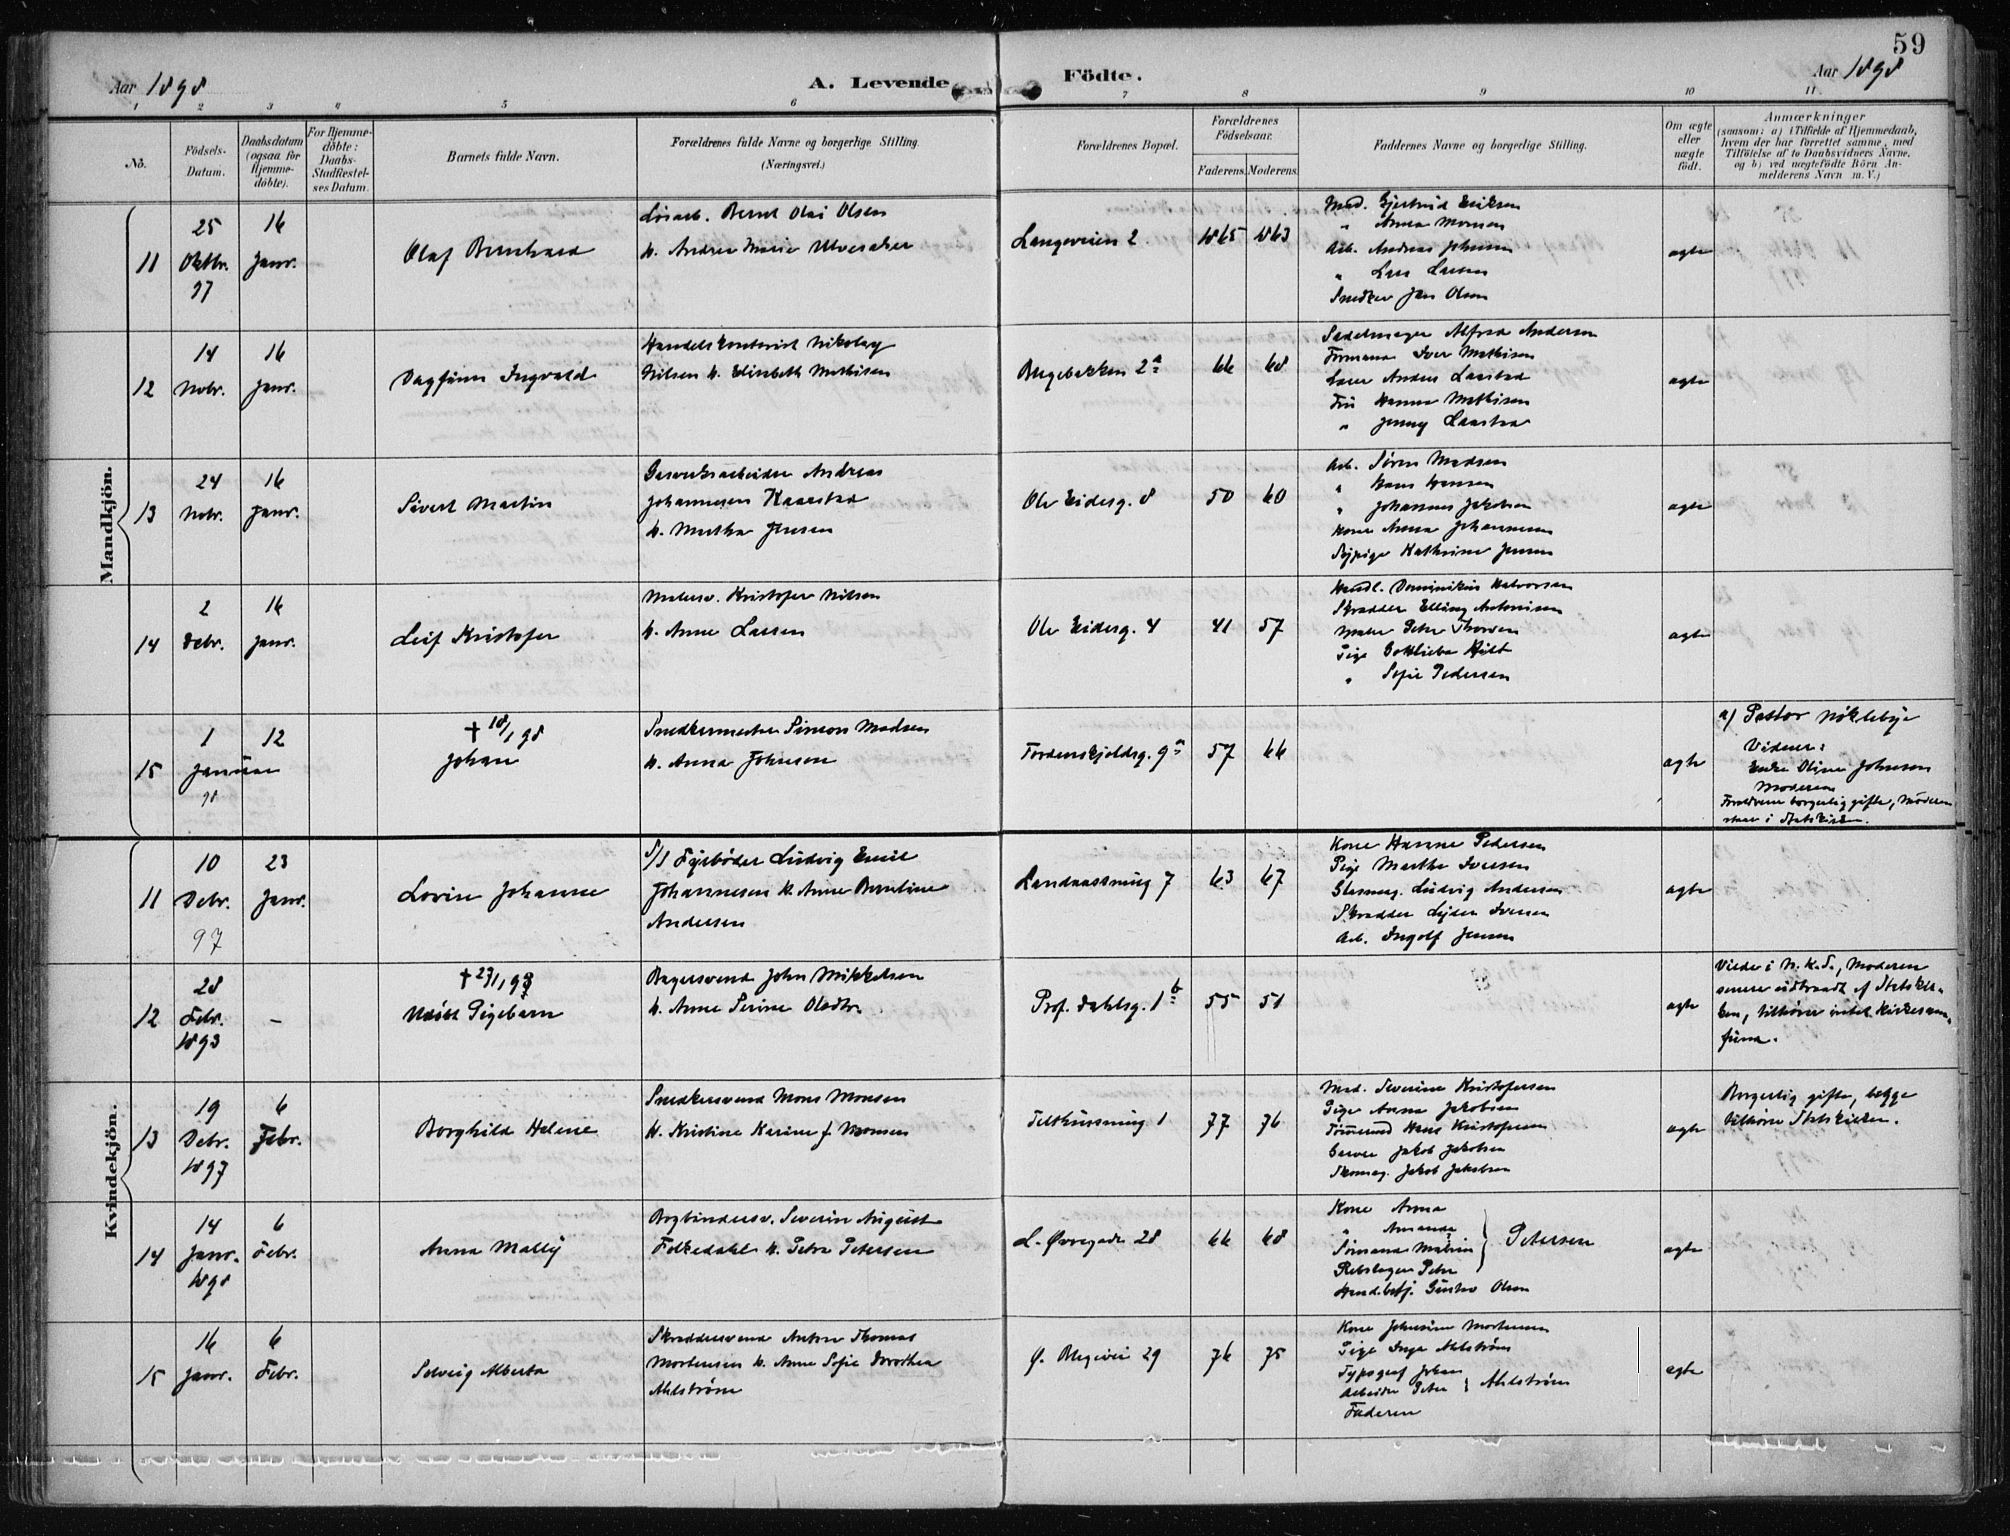 59
Aar 1898
A. Levende
Födte.
Aar 1898
1 2 3 4 5 6 7 8 9 10 11
No.
Födsels-
Datum.
Daabsdatum
(ogsaa for
Hjemme-
döbte).
For Hjemme-
döbte:
Daabs-
Stadfæstel-
ses Datum.
Barnets fulde Navn.
Forældrenes fulde Navne og borgerlige Stilling.
(Næringsvei.)
Forældrenes Bopæl.
Forældrenes
Födselsaar.
Faderens. Moderens.
Faddernes Navne og borgerlige Stilling.
Om ægte
eller
uægte
født.
Anmærkninger
(saasom: a) i Tilfælde af Hjemmedaab,
hvem der har forrettet samme, med
Tilföielse af to Daabsvidners Navne,
og b) ved uægtefödte Börn An-
melderens Navn m. V.)
Mandkjön.
11
25
Oktbr.
97
16
Janr.
Olaf Bernhard
Løsarb. Bernt Olai Olsen
h. Andrea Marie Ulvesaker
Langeveien 2.
1865 1863
Mad. Gjertrud Eriksen
" Anna Monsen
Arb. Andreas Johnsen
" Lars Larsen
Snedker Jan Olsen
ægte
12
14
Nobr.
16
Janr.
Dagfinn Ingvald
Handelskontorist Nikolay
Nilsen h. Elisabeth Mathisen
Bugebakken 2a
66 68
Sadelmager Alfred Andersen
Formand Iver Mathisen
Lærer Anders Laastad
Fru Hanna Mathisen
" Jenny Laastad
ægte
13
24
Nobr.
16
Janr.
Sivert Martin
Gasverksarbeider Andreas
Johannesen Kaarstad
h. Martha Jensen
Ole Eidesg. 8
50 60
Arb. Søren Madsen
" Hans Hansen
" Johannes Jakobsen
Kone Anna Johannesen
Sypige Kathrine Jensen
ægte
14
2
Debr.
16
Janr.
Leif Kristofer
Malersv. Kristofer Nilsen
h. Anne Larsen
Ole Eidesg. 4
41 57
Handl. Dominikus Halvorsen
Skrædder Elling Antonisen
Maler Peter Thorsen
Pige Gotlieba Hilt
" Sofie Pedersen
ægte
15
1
Januar
98
12
† 18/1 98
Johan
Snedkermester Simon Madsen
h. Anna Johnson
Tordenskjoldsg. 9a
57 66
ægte
a) Pastor Nøkleby
Vidner:
Enke Oline Johnson
Moderen
Forældrene borgerlig gifte, Moderen
staar i Statskirken.
Kvindekjön.
11
10
Debr.
97
23
Janr.
Lovise Johanne
S/S Fyrbøder Ludvig Emil
Johannesen h. Anne Berntine
Andersen
Landaassmug 7
63 67
Kone Hanne Pedersen
Pige Marthe Iversen
Glasmag. Ludvig Andersen
Skrædder Lyder Iversen
Arb. Ingolf Jensen
ægte
12
28
Febr.
1893
–
Udøbt Pigebarn
Bagersvend John Mikkelsen
h. Anne Serine Olsdtr.
Prof. Dahlsg. 1b
55 51
ægte
Viede i N. K. S., Moderen
senere udtraadt af Statskir-
ken, tilhører intet Kirkesam-
fund.
13
19
Debr.
1897
6
Febr.
Borghild Helene
Snedkersvend Mons Monsen
h. Kristine Karine f. Monsen
Telthussmug 1
77 76
Mad. Severine Kristofersen
Pige Anna Jakobsen
Tømmermd Hans Kristofersen
Garver Jakob Jakobsen
Skomag. Jakob Jakobsen
ægte
Borgerlig gifte, begge
tilhører Statskirken.
14
14
Janr.
1898
6
Febr.
Anna Mally
Bogbindersv. Severin August
Folkedahl h. Petra Petersen
L. Øvregade 28
66 68
Kone Anna
" Amanda
Sømand Mabin Petersen
Rebslager Peter
Handbetj. Gustav Olsen
ægte
15
16
Janr.
6
Febr.
Solveig Alberta
Skræddersvend Anton Thomas
Mortensen h. Anne Sofie Dorothea
Ahlstrøm
Ø. Blegevei 29
76 75
Kone Johanne Mortensen
Pige Inga Ahlstrøm
Typograf Johan
Arbeider Peter Ahlstrøm
Faderen
ægte